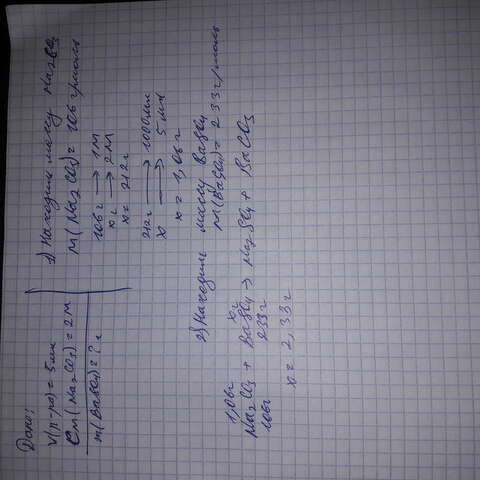 Дано:
V(р-ра) = 5 мл
Cм(Na2CO3) = 2М
m(BaSO4) = ? г
1) Находим массу Na2CO3
M(Na2CO3) = 106 г/моль
106г → 1М
x г → 2М
x = 212г
212г → 1000мл
x → 5 мл
x = 1,06 г
2) Находим массу BaSO4
M(BaSO4) = 233 г/моль
1,06г x г
Na2CO3 + BaSO4 → Na2SO4 + BaCO3
106г 233 г
x = 2,33 г